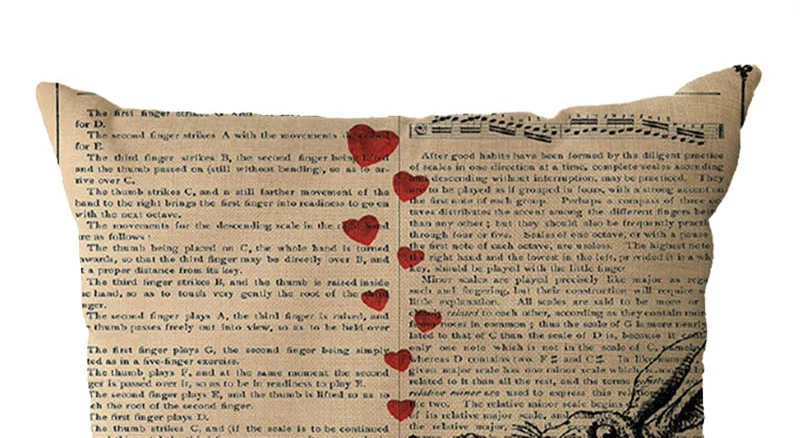 The first finger strikes G and
for D.
The second finger strikes A with the movements described
for E.
The third finger strikes B, the second finger being lifted
and the thumb passed on (still without bending), so as to ar-
rive over C.
The thumb strikes C, and a still farther movement of the
hand to the right brings the first finger into readiness to go on
with the next octave.
The movements for descending the scale in the right hand
are as follows:
The thumb being placed on C, the whole hand is turned
wards, so that the third finger may be directly over B, and
t a proper distance from its key.
The third finger strikes B, and the thumb is raised inside
he hand, so as to touch very gently the root of the third
nger.
The second finger plays A, the third finger is raised, and
thumb passes freely out into view, so as to be held over
The first finger plays G, the second finger being simply
ted as in a five-finger exercise.
The thumb plays F, and at the same moment the second
ger is passed over it, so as to be in readiness to play E.
The second finger plays E, and the thumb is lifted so as to
ch the root of the second finger.
The first finger plays D.
The thumb strikes C, and (if the scale is to be continued
After good habits have been formed by the diligent practice
of scales in one direction at a time, complete scales ascending
and descending without interruption, may be practiced. They
are to be played as if grouped in fours, with a strong accent on
the first note of each group. Perhaps a compass of three oc-
taves distributes the accent among the different fingers bett
than any other; but they should also be frequently practi
through four or five. Scales of one octave, or with a pause
the first note of each octave, are useless. The highest note
the right hand and the lowest in the left, provided it is a wh
key, should be played with the little finger.
Minor scales are played precisely like major as regar
and fingering, but their construction will require
little explanation. All scales are said to be more or
closely related to each other, according as they contain more
notes in common; thus the scale of G is more nearly
lated to that of C than the scale of D is, because it conta
only one note which is not in the scale of C, namely,
whereas D contains two, F♯ and C♯. In like manner
given major scale has one minor scale which
related to it than all the rest, and the terms relative
relative minor are used to express this relation
the two. The relative minor scale begins
of its relative major scale, and
the relative major,